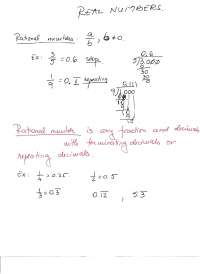 REAL NUMBERS
Rational numbers: a/b, b≠0
Ex: 3/5 = 0.6 stops
0.6
5)3.000
0
30
30
0
1/9 = 0.1̅ repeating
0.111
9)1.000
Rational number is any fraction and decimals
with terminating decimals or
repeating decimals.
Ex: 1/4 = 0.25 1/2 = 0.5
1/3 = 0.3̅ 0.1̅2̅ , 5.3̅